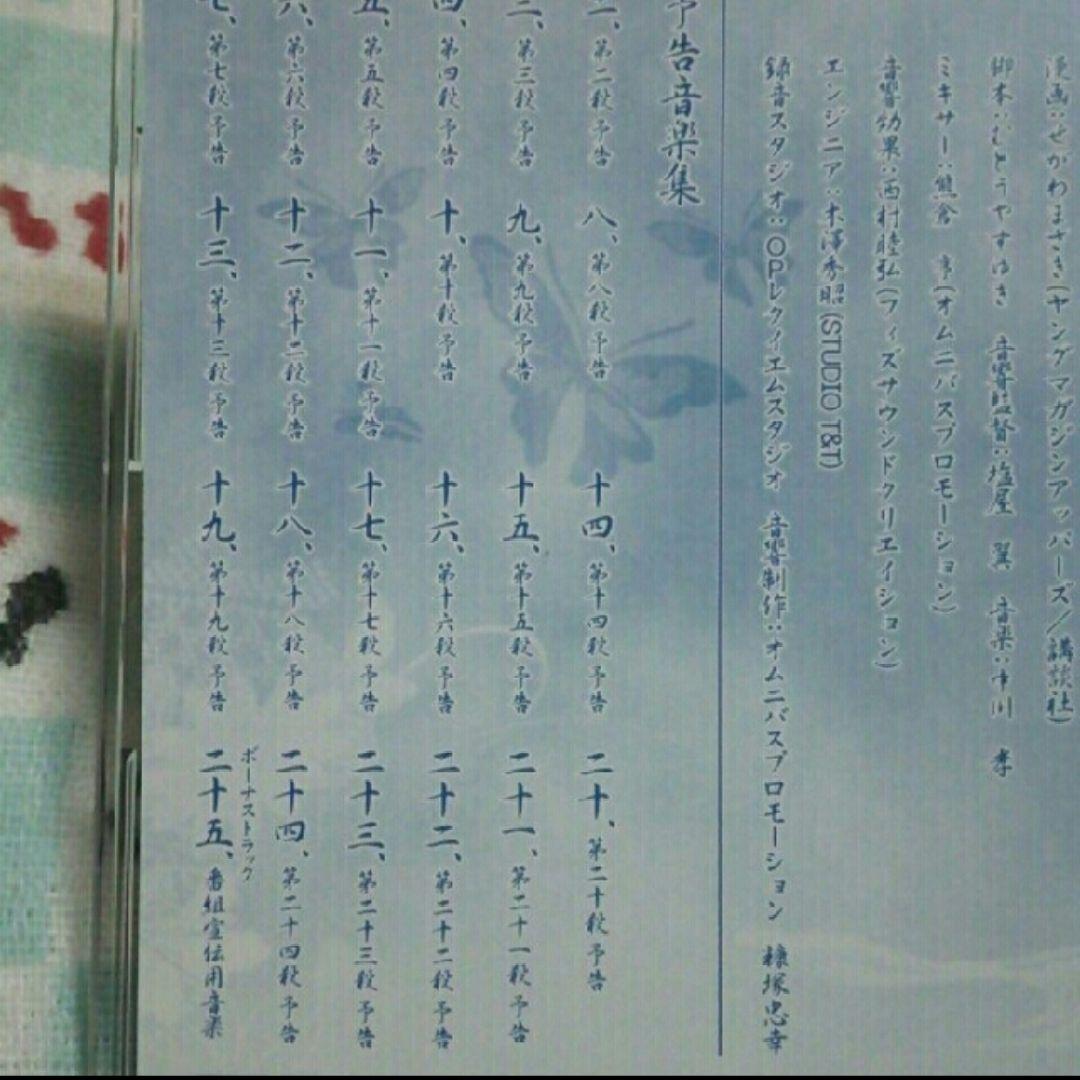 漫画:せがわまさき(ヤングマガジンアッパーズ/講談社)
脚本:むとうやすゆき 音響監督:塩屋 翼 音楽:市川 孝
ミキサー:熊倉 亨(オムニバスプロモーション)
音響効果:西村睦弘(フィズサウンドクリエイション)
エンジニア:木澤秀昭(STUDIO T&T)
録音スタジオ:O.P.レクイエムスタジオ 音響制作:オムニバスプロモーション 糠塚忠幸
予告音楽集
二、第二殺予告
八、第八殺予告
十四、第十四殺予告
二十、第二十殺予告
三、第三殺予告
九、第九殺予告
十五、第十五殺予告
二十一、第二十一殺予告
四、第四殺予告
十、第十殺予告
十六、第十六殺予告
二十二、第二十二殺予告
五、第五殺予告
十一、第十一殺予告
十七、第十七殺予告
二十三、第二十三殺予告
六、第六殺予告
十二、第十二殺予告
十八、第十八殺予告
二十四、第二十四殺予告
七、第七殺予告
十三、第十三殺予告
十九、第十九殺予告
ボーナストラック
二十五、番組宣伝用音楽